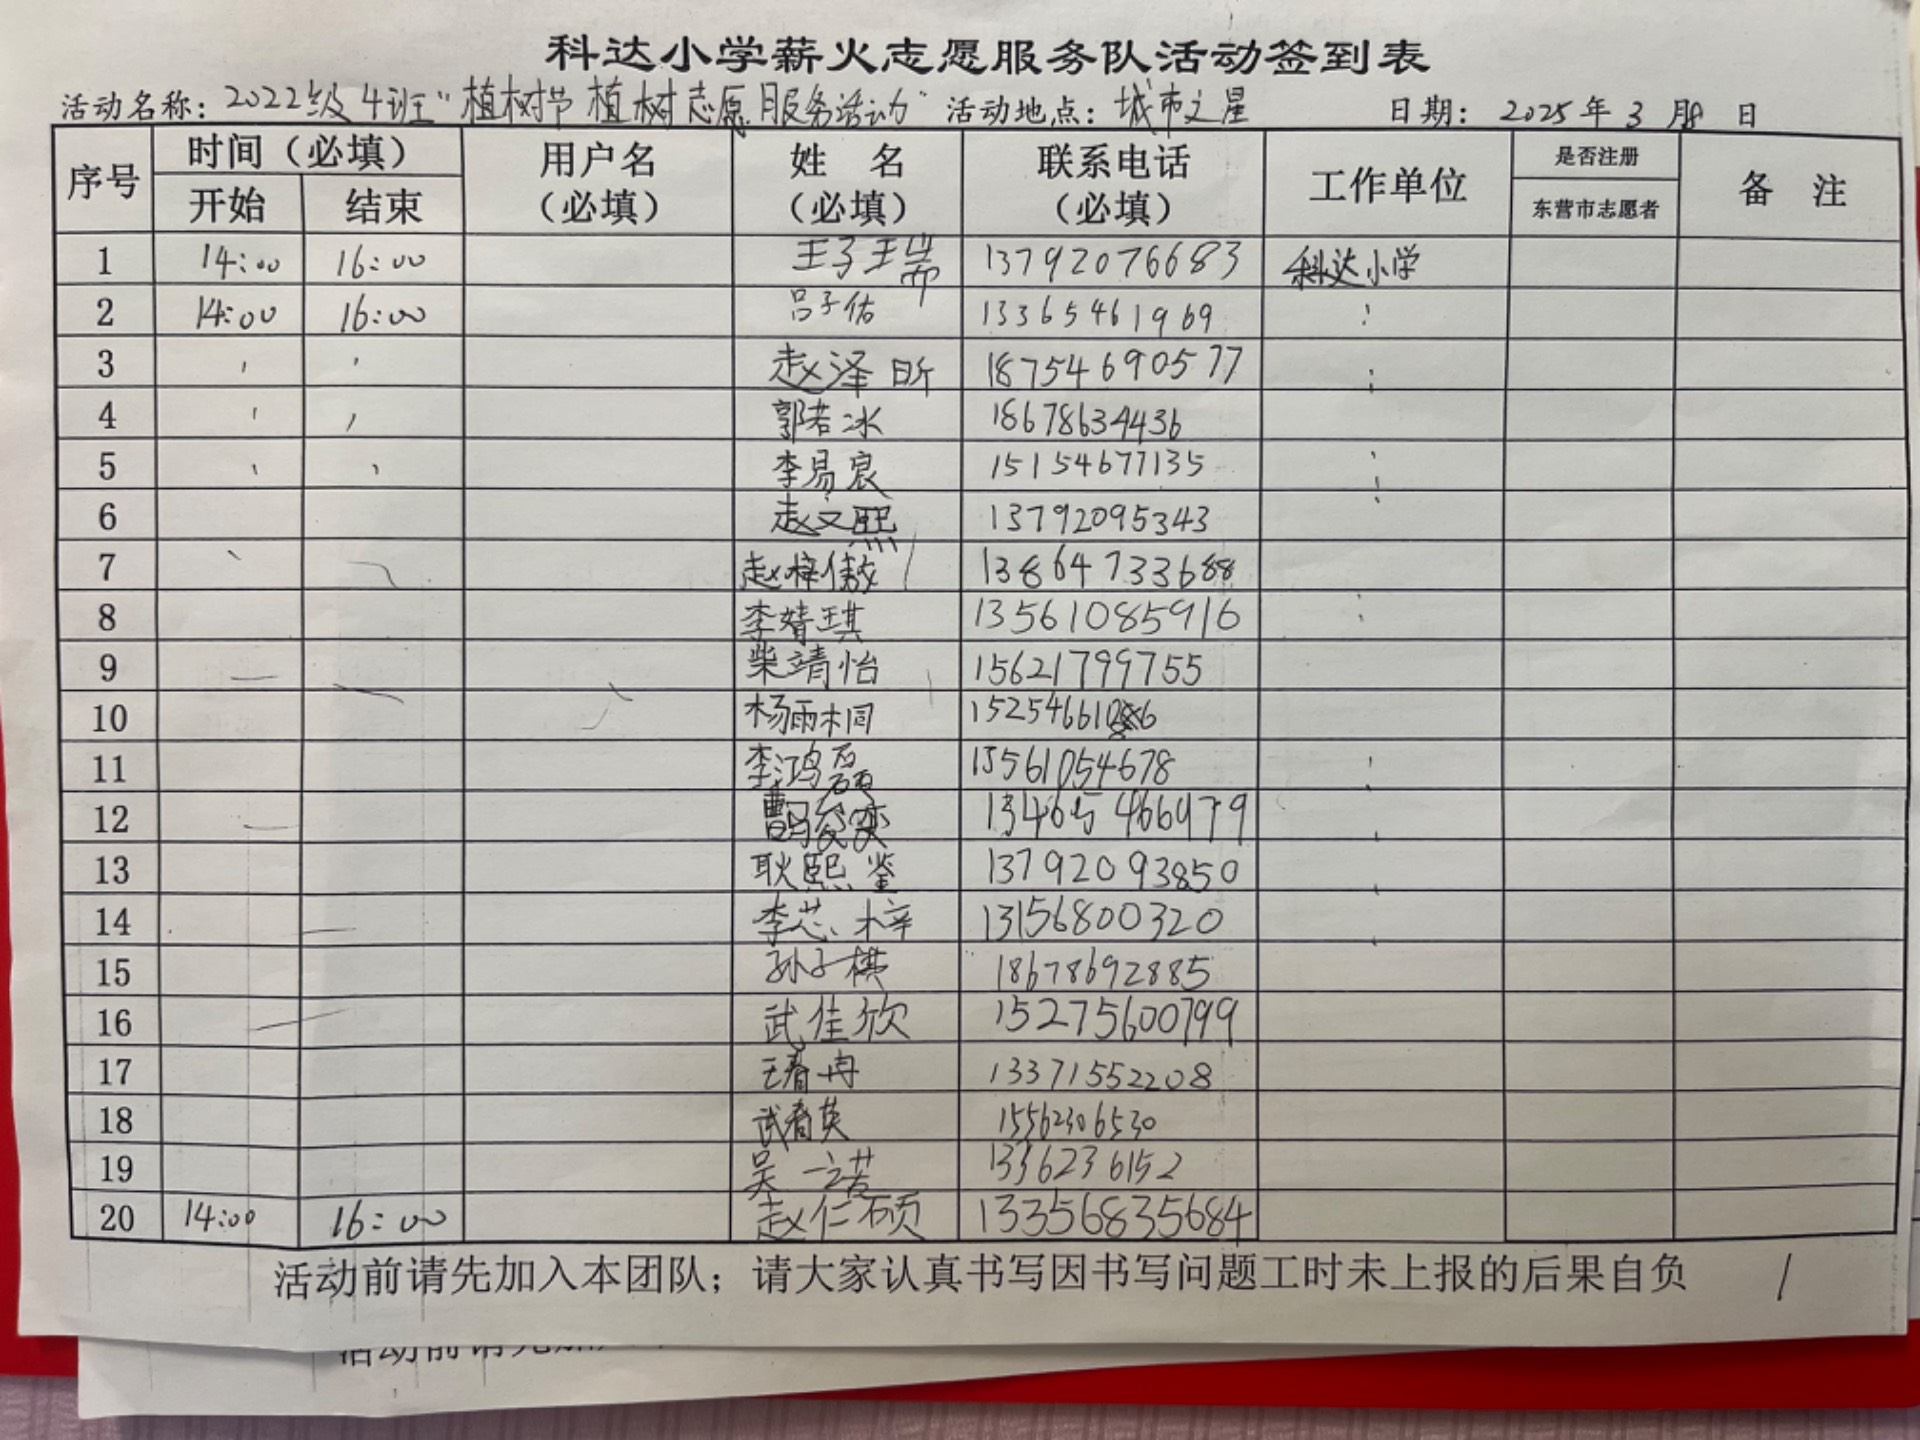 科达小学薪火志愿服务队活动签到表
活动名称：2022级4班"植树节 植树志愿服务活动" 活动地点：城市之星 日期：2025年3月8日
序号 时间（必填） 用户名（必填） 姓 名（必填） 联系电话（必填） 工作单位 是否注册 备 注
开始 结束 东营市志愿者
1 14:00 16:00 王子瑞 13792076683 科达小学
2 14:00 16:00 吕子佑 13365461969
3 赵泽昕 18754690577
4 郭若冰 18678634436
5 李易宸 15154677135
6 赵文熙 13792095343
7 赵梓傲 13864733688
8 李婧琪 13561085916
9 柴靖怡 15621799755
10 杨雨桐
11 李鸿磊 13561054678
12
13 耿熙鉴 13792093850
14 李芯梓 13156800320
15 孙子棋 18678692885
16 武佳欣 15275600799
17 王春冉 13371552208
18 武春英 15562306530
19 吴一诺 1336236152
20 14:00 16:00 赵仁硕 13356835684
活动前请先加入本团队；请大家认真书写因书写问题工时未上报的后果自负 1